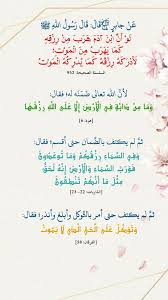 عَنْ جَابِرٍ ﷺ قَالَ: قَالَ رَسُولُ اللَّهِ ﷺ
لَوْ أَنَّ ابْنَ آدَمَ هَرَبَ مِنْ رِزْقِهِ
كَمَا يَهْرَبُ مِنَ الْمَوْتِ؛
لَأَدْرَكَهُ رِزْقُهُ كَمَا يُدْرِكُهُ الْمَوْتُ
السلسلة الصحيحة: 952
لأنَّ اللهَ تعالى ضَمِنَه له؛ فقال:
وَمَا مِنْ دَابَّةٍ فِي الْأَرْضِ إِلَّا عَلَى اللَّهِ رِزْقُهَا
[هود 6]
ثمَّ لم يكتفِ بالضَّمان حتى أقسم؛ فقال:
وَفِي السَّمَاءِ رِزْقُكُمْ وَمَا تُوعَدُونَ
فَوَرَبِّ السَّمَاءِ وَالْأَرْضِ إِنَّهُ لَحَقٌّ
مِثْلَ مَا أَنَّكُمْ تَنْطِقُونَ
[الذاريات: 22-23]
ثمَّ لم يكتفِ حتى أمر بالتَّوكل وأبلغ وأنذر؛ فقال:
وَتَوَكَّلْ عَلَى الْحَيِّ الَّذِي لَا يَمُوتُ
[الفرقان: 58]